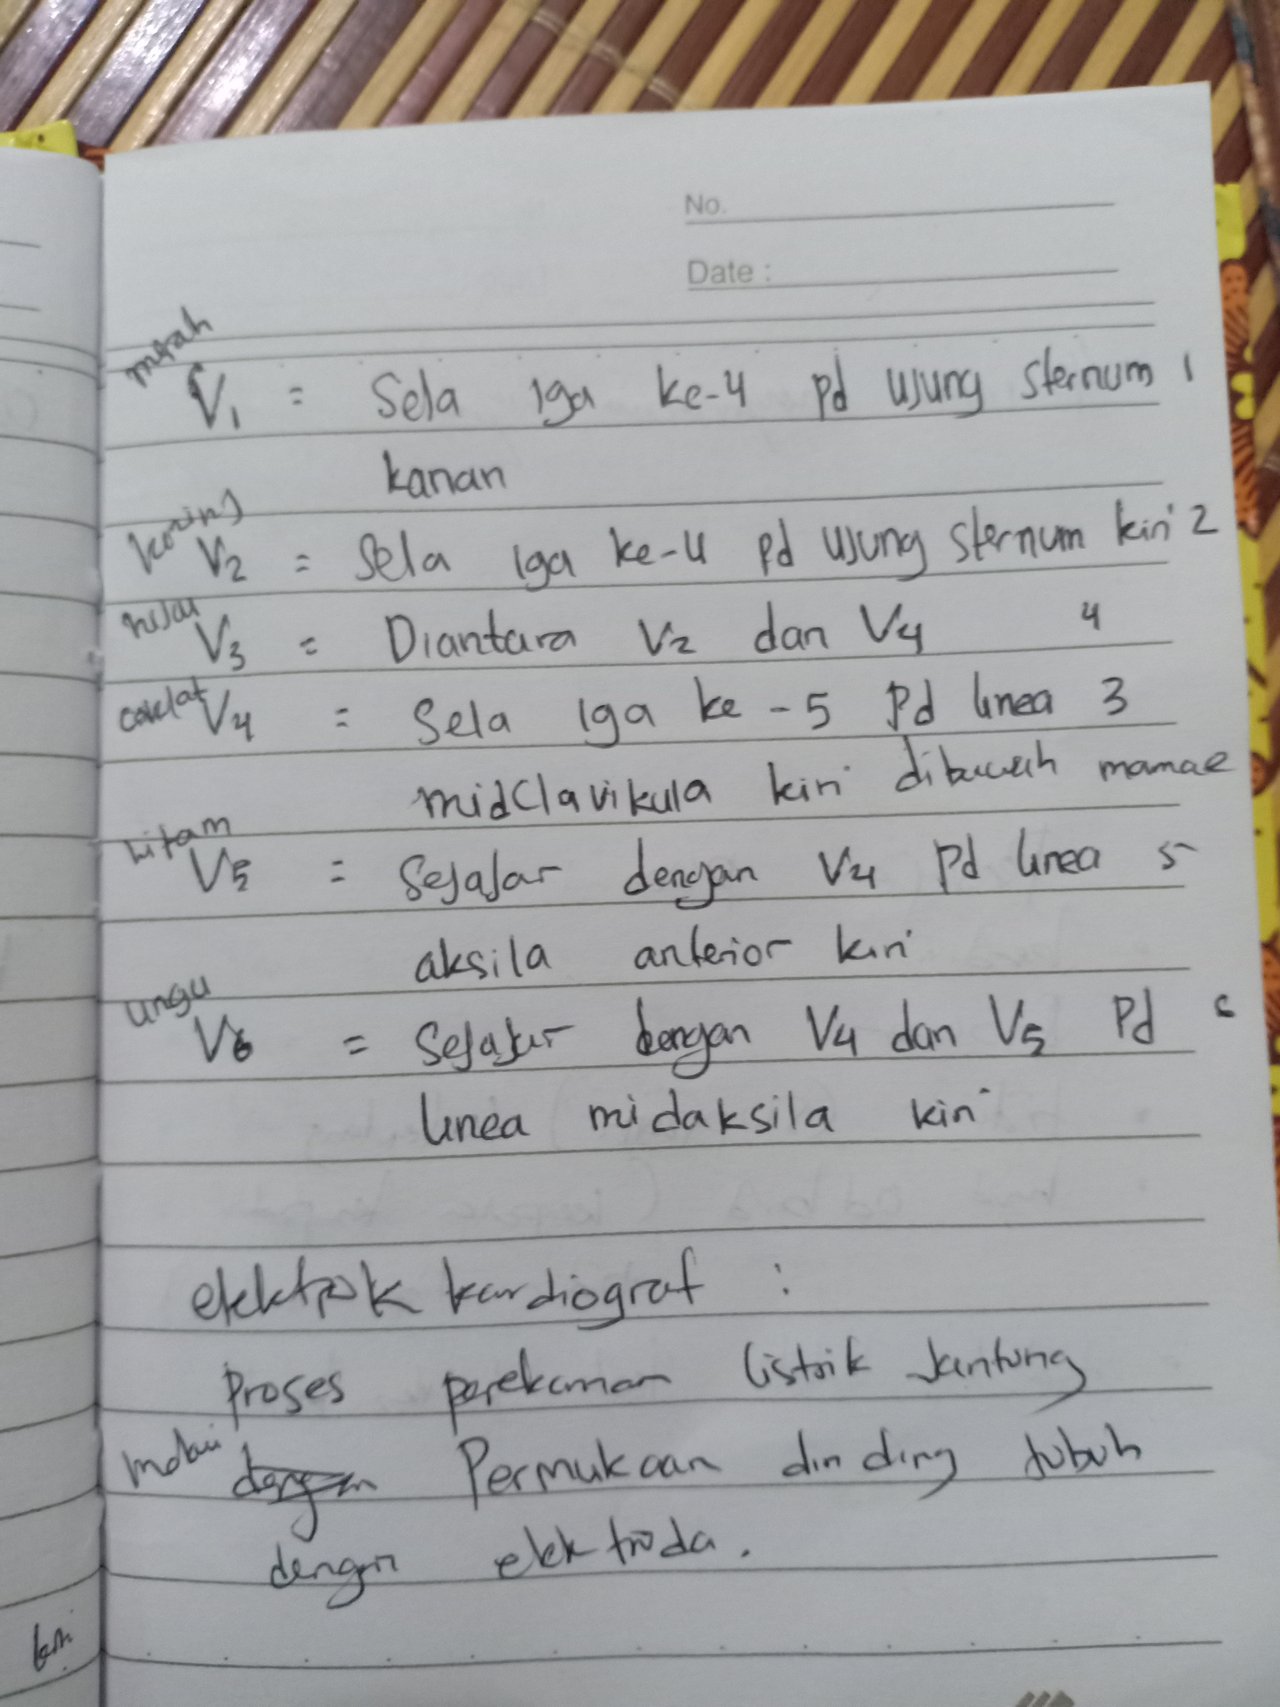 No.
Date :
merah
V1 = Sela iga ke-4 pd ujung sternum 1
kanan
kuning
V2 = Sela iga ke-4 pd ujung sternum kiri 2
hijau
V3 = Diantara V2 dan V4 4
coklat V4 = Sela iga ke-5 pd linea 3
midclavikula kiri dibawah mamae
hitam
V5 = Sejajar dengan V4 pd linea 5
aksila anterior kiri
ungu
V6 = Sejajar dengan V4 dan V5 pd
linea midaksila kiri
elektrokkardiograf :
Proses perekaman listrik jantung
melalui dengan Permukaan dinding tubuh
dengan elektroda.